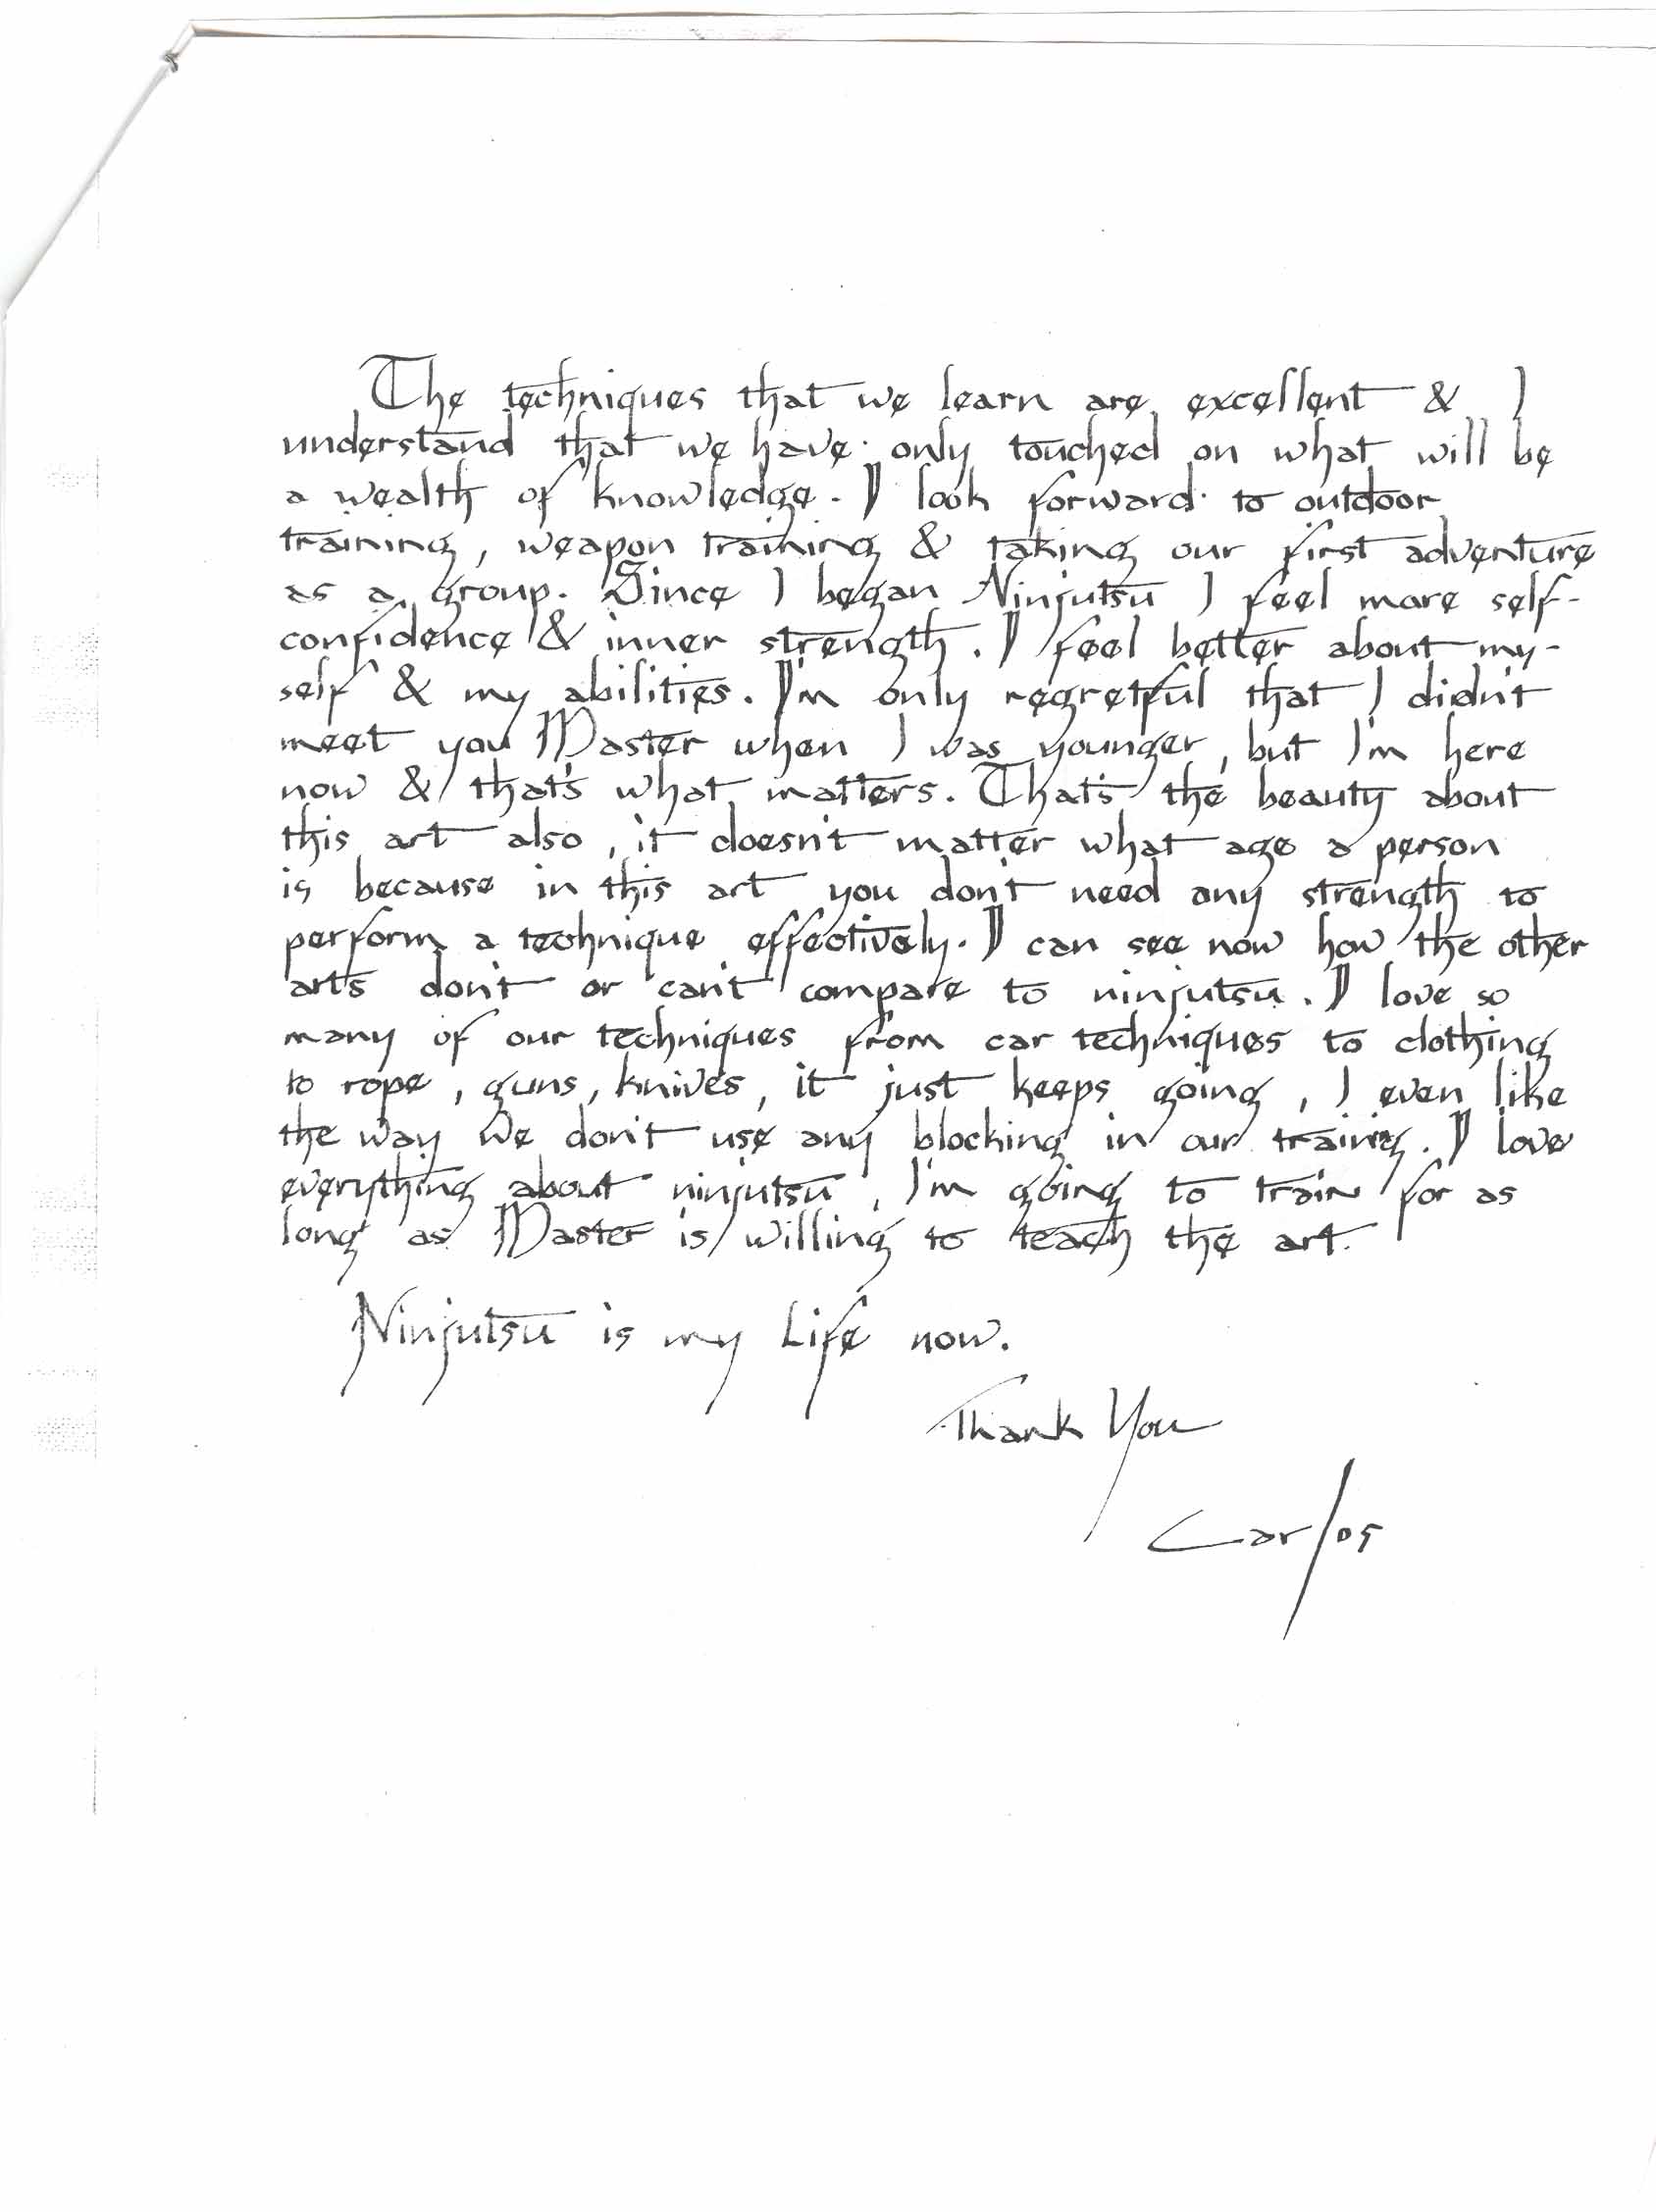 The techniques that we learn are excellent & I
understand that we have only touched on what will be
a wealth of knowledge. I look forward to outdoor
training, weapon training & taking our first adventure
as a group. Since I began Ninjutsu I feel more self-
confidence & inner strength. I feel better about my-
self & my abilities. I'm only regretful that I didn't
meet you Master when I was younger, but I'm here
now & that's what matters. That's the beauty about
this art also, it doesn't matter what age a person
is because in this art you don't need any strength to
perform a technique effectively. I can see now how the other
arts don't or can't compare to ninjutsu. I love so
many of our techniques from car techniques to clothing
to rope, guns, knives, it just keeps going, I even like
the way we don't use any blocking in our trainig. I love
everything about ninjutsu, I'm going to train for as
long as Master is willing to teach the art.
Ninjutsu is my Life now.
Thank You
Carlos